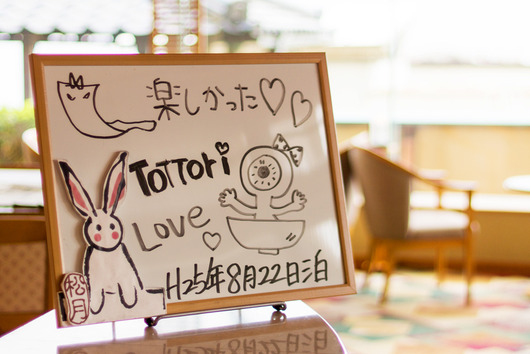 楽しかった♡♡
TOTTORi
LOVE♡
H25年8月22日泊
松月